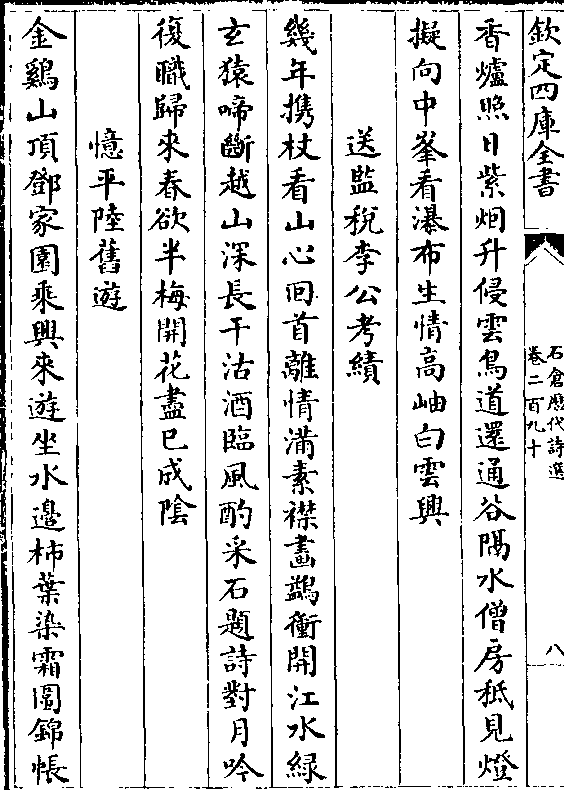 欽定四庫全書
石倉歷代詩選
卷二百九十
八
香爐照日紫烟升侵雲鳥道還通谷隔水僧房秪見燈
擬向中峯看瀑布生情高岫白雲興
送監稅李公考績
幾年携杖看山心回首離情滿素襟畫鷁衝開江水緑
玄猿啼斷越山深長干沽酒臨風酌采石題詩對月吟
復職歸來春欲半梅開花盡已成陰
憶平陸舊遊
金鷄山頂鄧家園乘興來遊坐水邉柿葉染霜圍錦帳